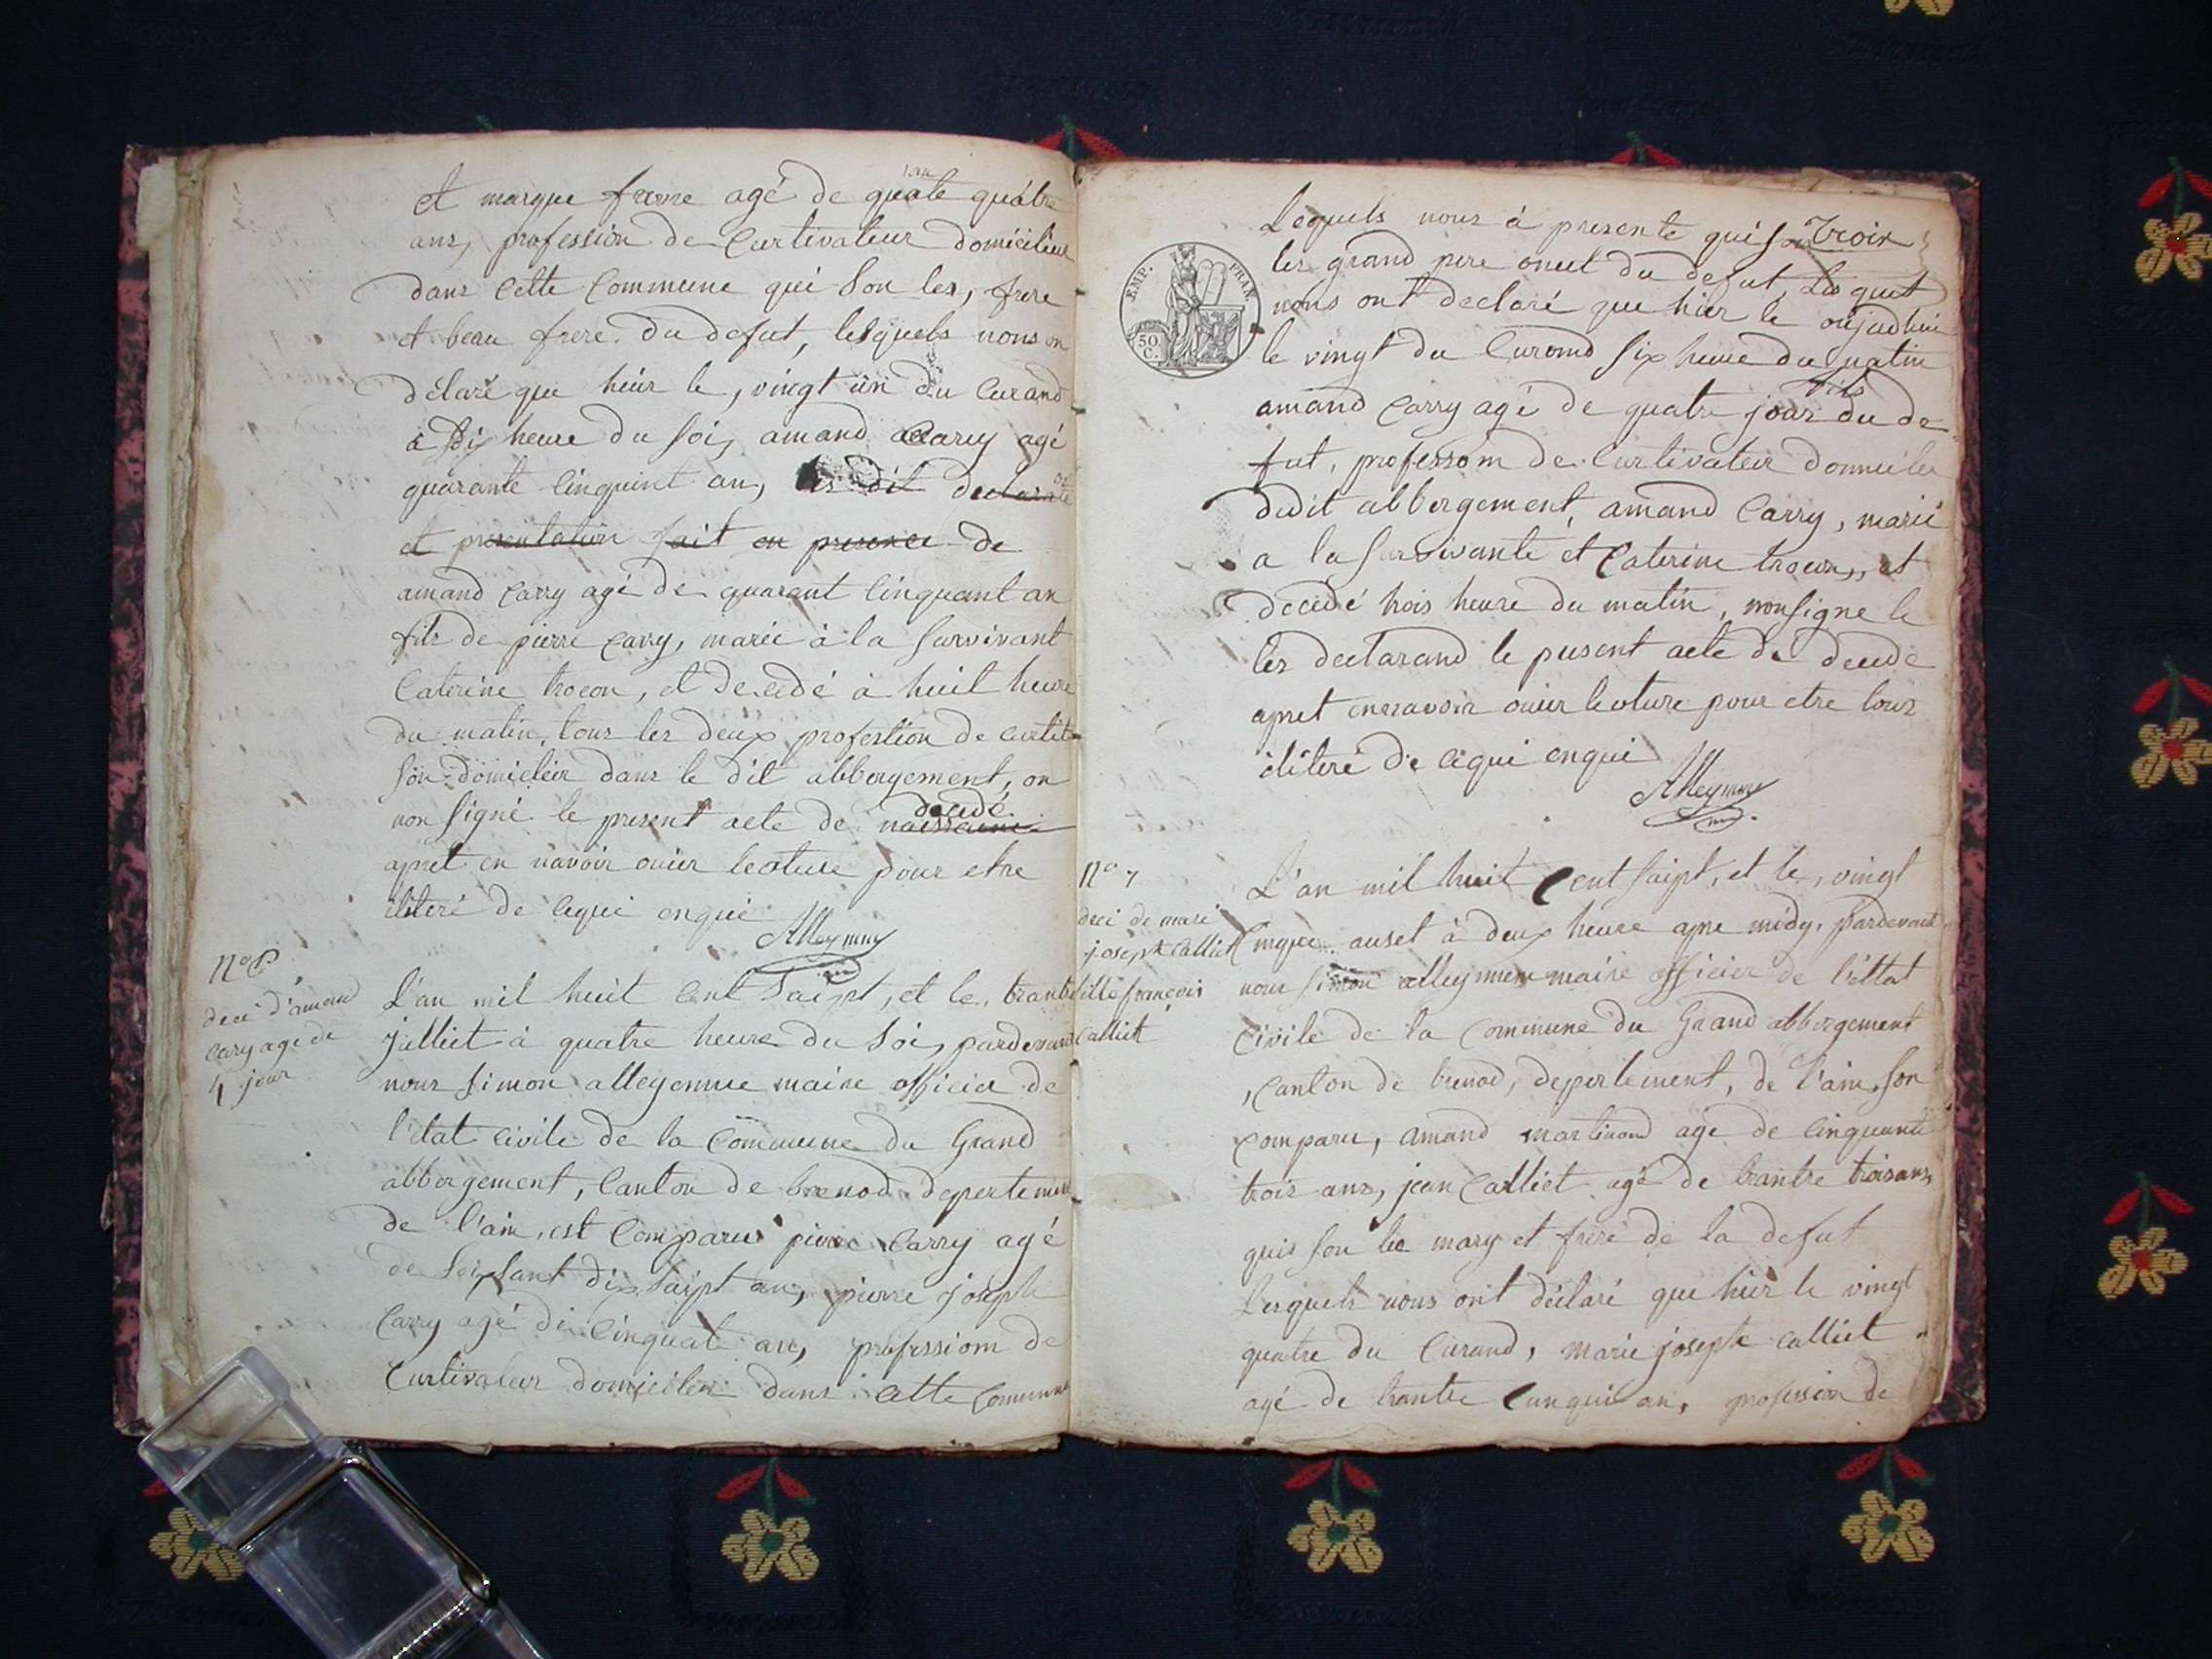 et marque frerre agé de quate quátre
ans, profession de Curtivateur domicilieur
dans Cette Commune qui Son les, frere
et beau frere du defut, lesquels nous on
délaré que heir le, vingt un du Curand
à Six heure du Soir, amand Carry agé
quarante Cinquint an, dit declarate
et presentation fait en presence de
amand Carry agé de quarant Cinquant an
fils de pierre Carry, marié à la Survivant
Caterine trocon, et decedé à huit heure
du matin, tous les deux profestion de curtit
Son domicileir dans le dit abbergement, on
decede
non Signé le present acte de naissance
apret en navoir ouier leoture pour etre
iliteré de cequi enqui
Alleymme
N° 6
deci d'amand
Cary age de
4 jour
L'an mil huit Cent Saipt, et le, trante
julliet à quatre heure du Soi, pardevant
nous Simon alleyemue maire officier de
l'état civile de la Commune du Grand
abbergement, Canton de brenod depertement
de l'ain, est Comparu pierre Carry agé
de Soixsant dix Saipt an, pierre joseph
Carry agé de Cinquat an, professiom de
Curtivateur domicileir dans Cette Commune
Lequels nous à presente qui son Troix
les grand pere oncel du defut, Lesquet
nous ont declaré que hier le oujadhui
EMP. FRAN.
50 C.
le vingt du Curomd Six heure du matin
fils
amand Carry agé de quatre jour du de
fut, professom de Curtivateur domicileir
dudit abbergement, amand Carry, marié
a la Survivante et Caterine trocon, et
decedé trois heure du matin, nonSigne le
les declarand le pusent acte de decede
apret ennavoir ouier leoture pour etre tous
iliteré de cequi enqui
Alleymme
N° 7
deci de mari
joseph Calliet
fille françois
Calliet
L'an mil huit Cent Saipt, et le, vingt
Cinque auset à deux heure apre midy, pardevant
nour Simon alleymme maire officier de l'éttat
Civile de la Commune du Grand abbergement
, Canton de brenod, depertement, de l'ain, Son
Comparu, amand martinand agé de Cinquante
trois ans, jean Calliet agé de trantre trois ans,
quis Son les mary et freré de la defut
Lesquels nous ont déclaré que hier le vingt
quatre du Curand, marie joseph Calliet
agé de trantre Cunqui an, profession de